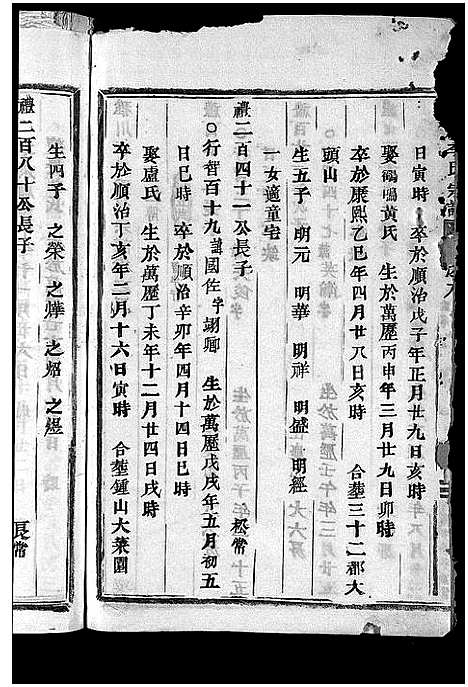 日寅時 卒於順治戊子年正月廿九日亥時
娶鶴鳴黃氏 生於萬歷丙申年三月廿九日卯時
卒於康熙乙巳年四月廿八日亥時 合塟三十二都大
頭山
生五子 明元 明華 明祥 明盛 明經
一女適童宅
禮二百四十二公長子 松常
○行智百十九諱國佐字翊卿 生於萬歷戊戌年五月初五
日巳時 卒於順治辛卯年四月十四日巳時
娶盧氏 生於萬歷丁未年十二月廿四日戌時
卒於順治丁亥年二月十六日寅時 合塟鍾山大菜園
生四子 之榮 之燁 之炤 之煜
禮二百八十公長子 長常